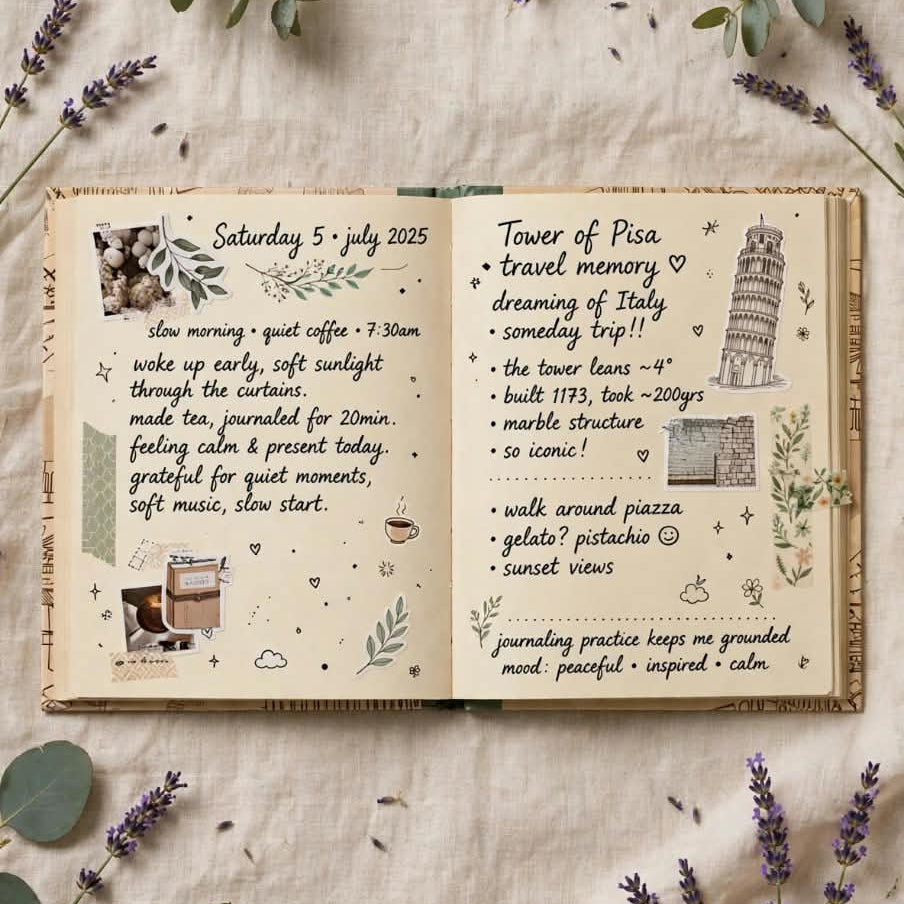 Saturday 5 • july 2025
slow morning • quiet coffee • 7:30am
woke up early, soft sunlight
through the curtains.
made tea, journaled for 20min.
feeling calm & present today.
grateful for quiet moments,
soft music, slow start.
Tower of Pisa
travel memory ♡
dreaming of Italy
• someday trip!!
• the tower leans ~4°
• built 1173, took ~200yrs
• marble structure
• so iconic!
• walk around piazza
• gelato? pistachio ☺
• sunset views
journaling practice keeps me grounded
mood: peaceful • inspired • calm